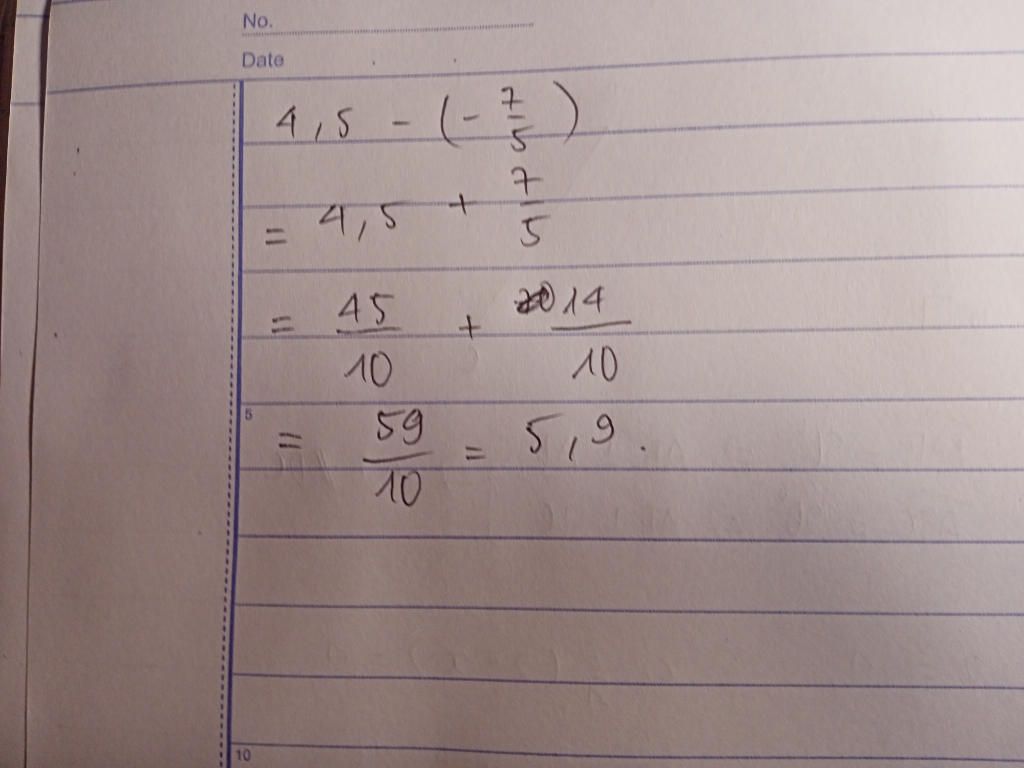 No.
Date
4,5 - (- 7/5)
= 4,5 + 7/5
= 45/10 + 14/10
5
= 59/10 = 5,9.
10